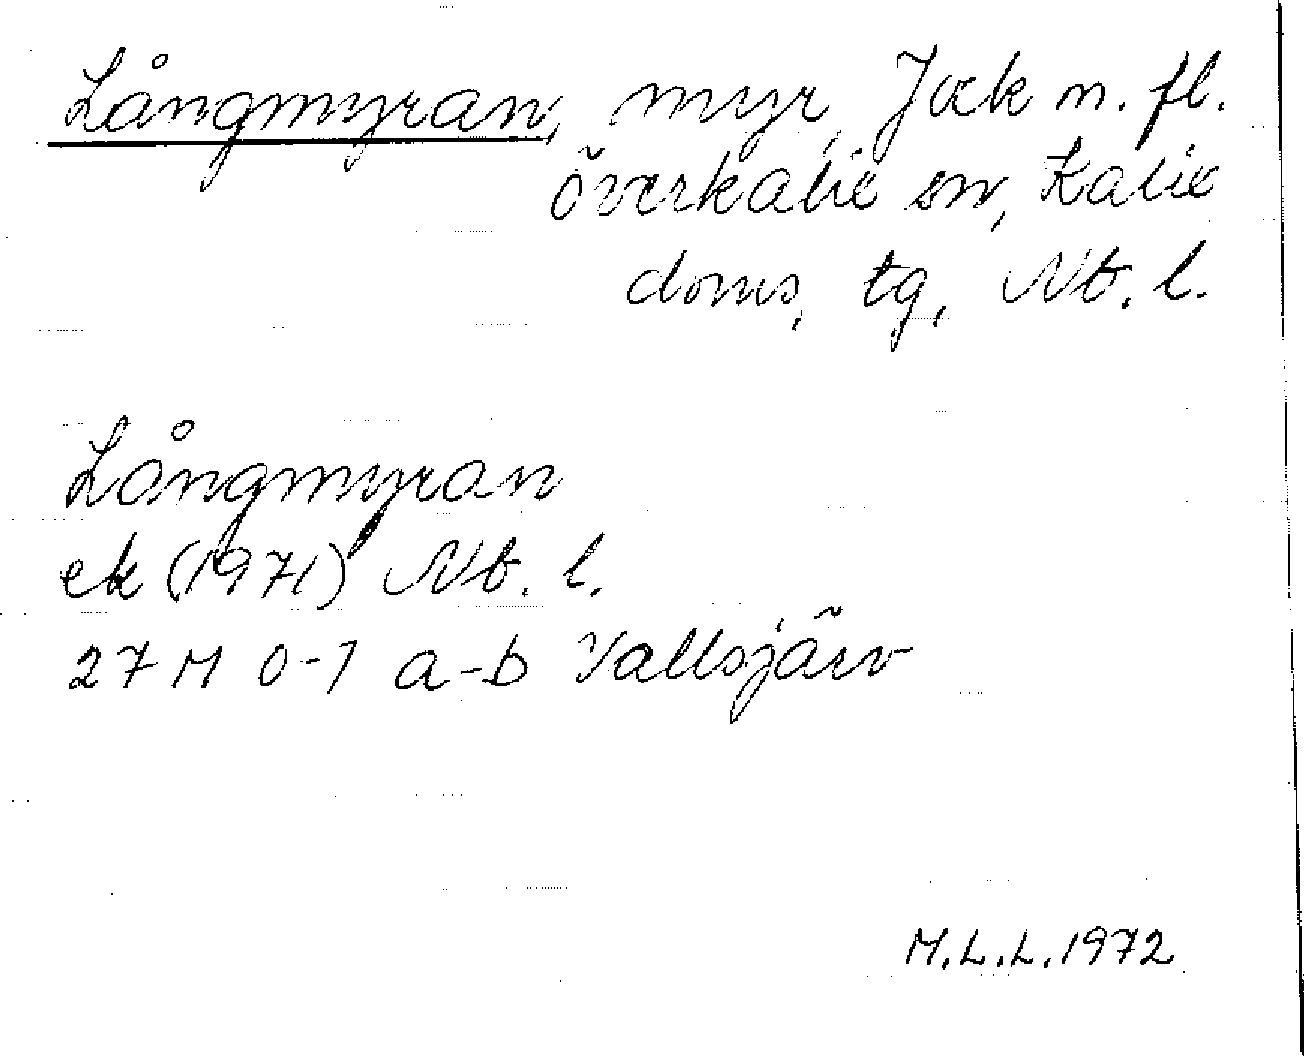 Långmyran, myr, Jock m. fl.
Överkalix sn, Kalix
doms. tg, Nb. l.
Långmyran
ek (1971) Nb. l.
27 M 0-1 a-b Vallsjärv
M.L.L. 1972